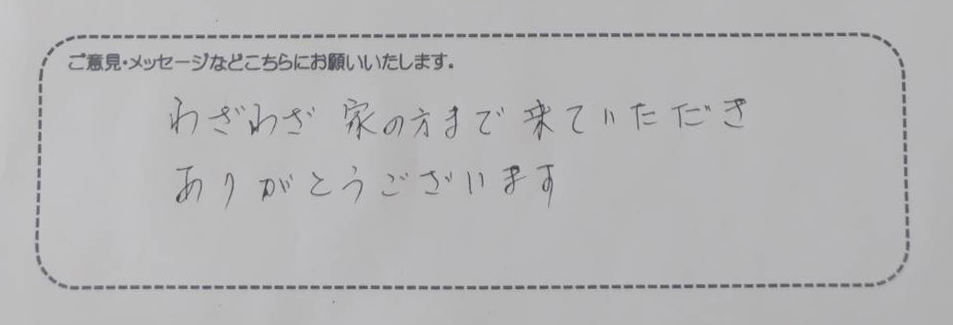 ご意見・メッセージなどこちらにお願いいたします。
わざわざ 家の方まで来ていただき
ありがとうございます